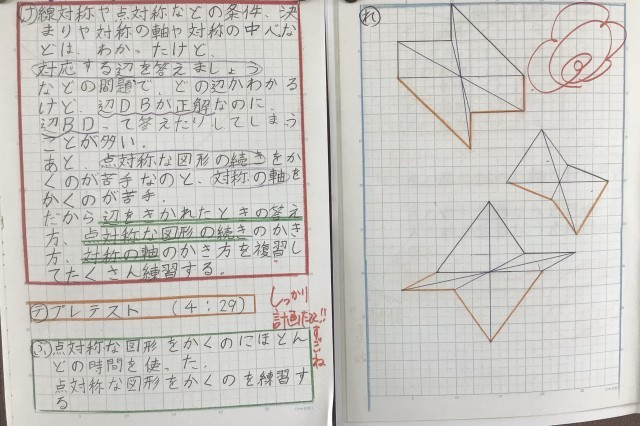 け 線対称や点対称などの条件、決
まりや対称の軸や対称の中心な
どは、わかったけど、
対応する辺を答えましょう
などの問題で、どの辺かわかる
けど、辺DBが正解なのに、
辺BDって答えたりしてしまう
ことが多い。
あと、点対称な図形の続きをか
くのが苦手なのと、対称の軸を
かくのが苦手。
だから辺をきかれたときの答え
方、点対称な図形の続きのかき
方、対称の軸のかき方を復習し
てたくさん練習する。
テ プレテスト (4:29)
しっかり
計画だね!!
すごいね
ふ 点対称な図形をかくのにほとん
どの時間を使った。
点対称な図形をかくのを練習す
る
れ